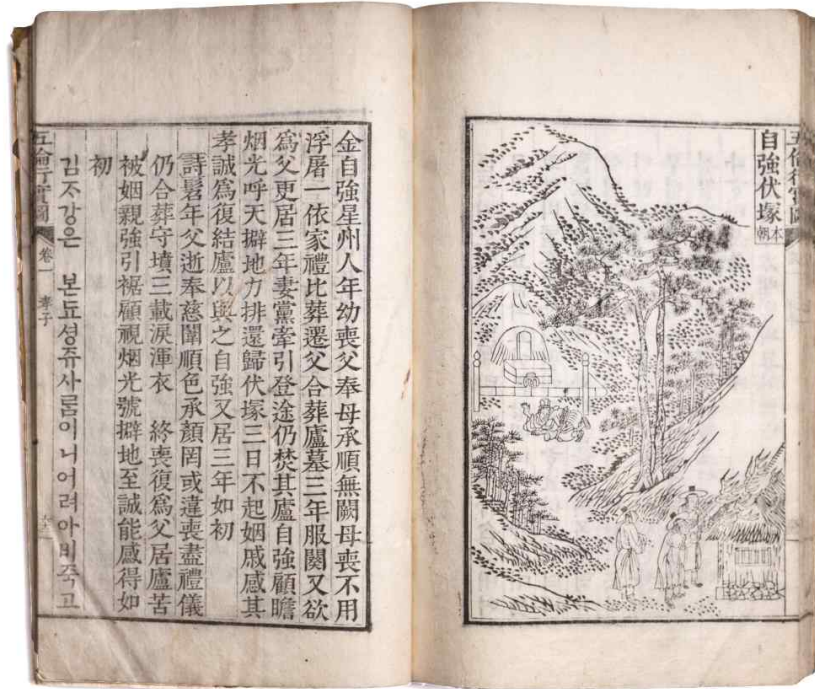 五倫行實圖
自強伏塚 本朝
金自強星州人年幼喪父奉母承順無闕母喪不用
浮屠一依家禮比葬遷父合葬廬墓三年服闋又欲
爲父更居三年妻黨牽引登途仍焚其廬自強顧瞻
烟光呼天擗地方排還歸伏塚三日不起姻戚感其
孝誠爲復結廬以與之自強又居三年如初
詩髫年父逝奉慈闈順色承顏罔或違喪盡禮儀
仍合葬守墳三載淚渾衣 終喪復爲父居廬苦
被姻親強引裾顧視烟光號擗地至誠能感得如
初
김ᄌᆞ강은 본됴셩쥬사ᄅᆞᆷ이니어려아비죽고
五倫行實圖 卷一 孝子